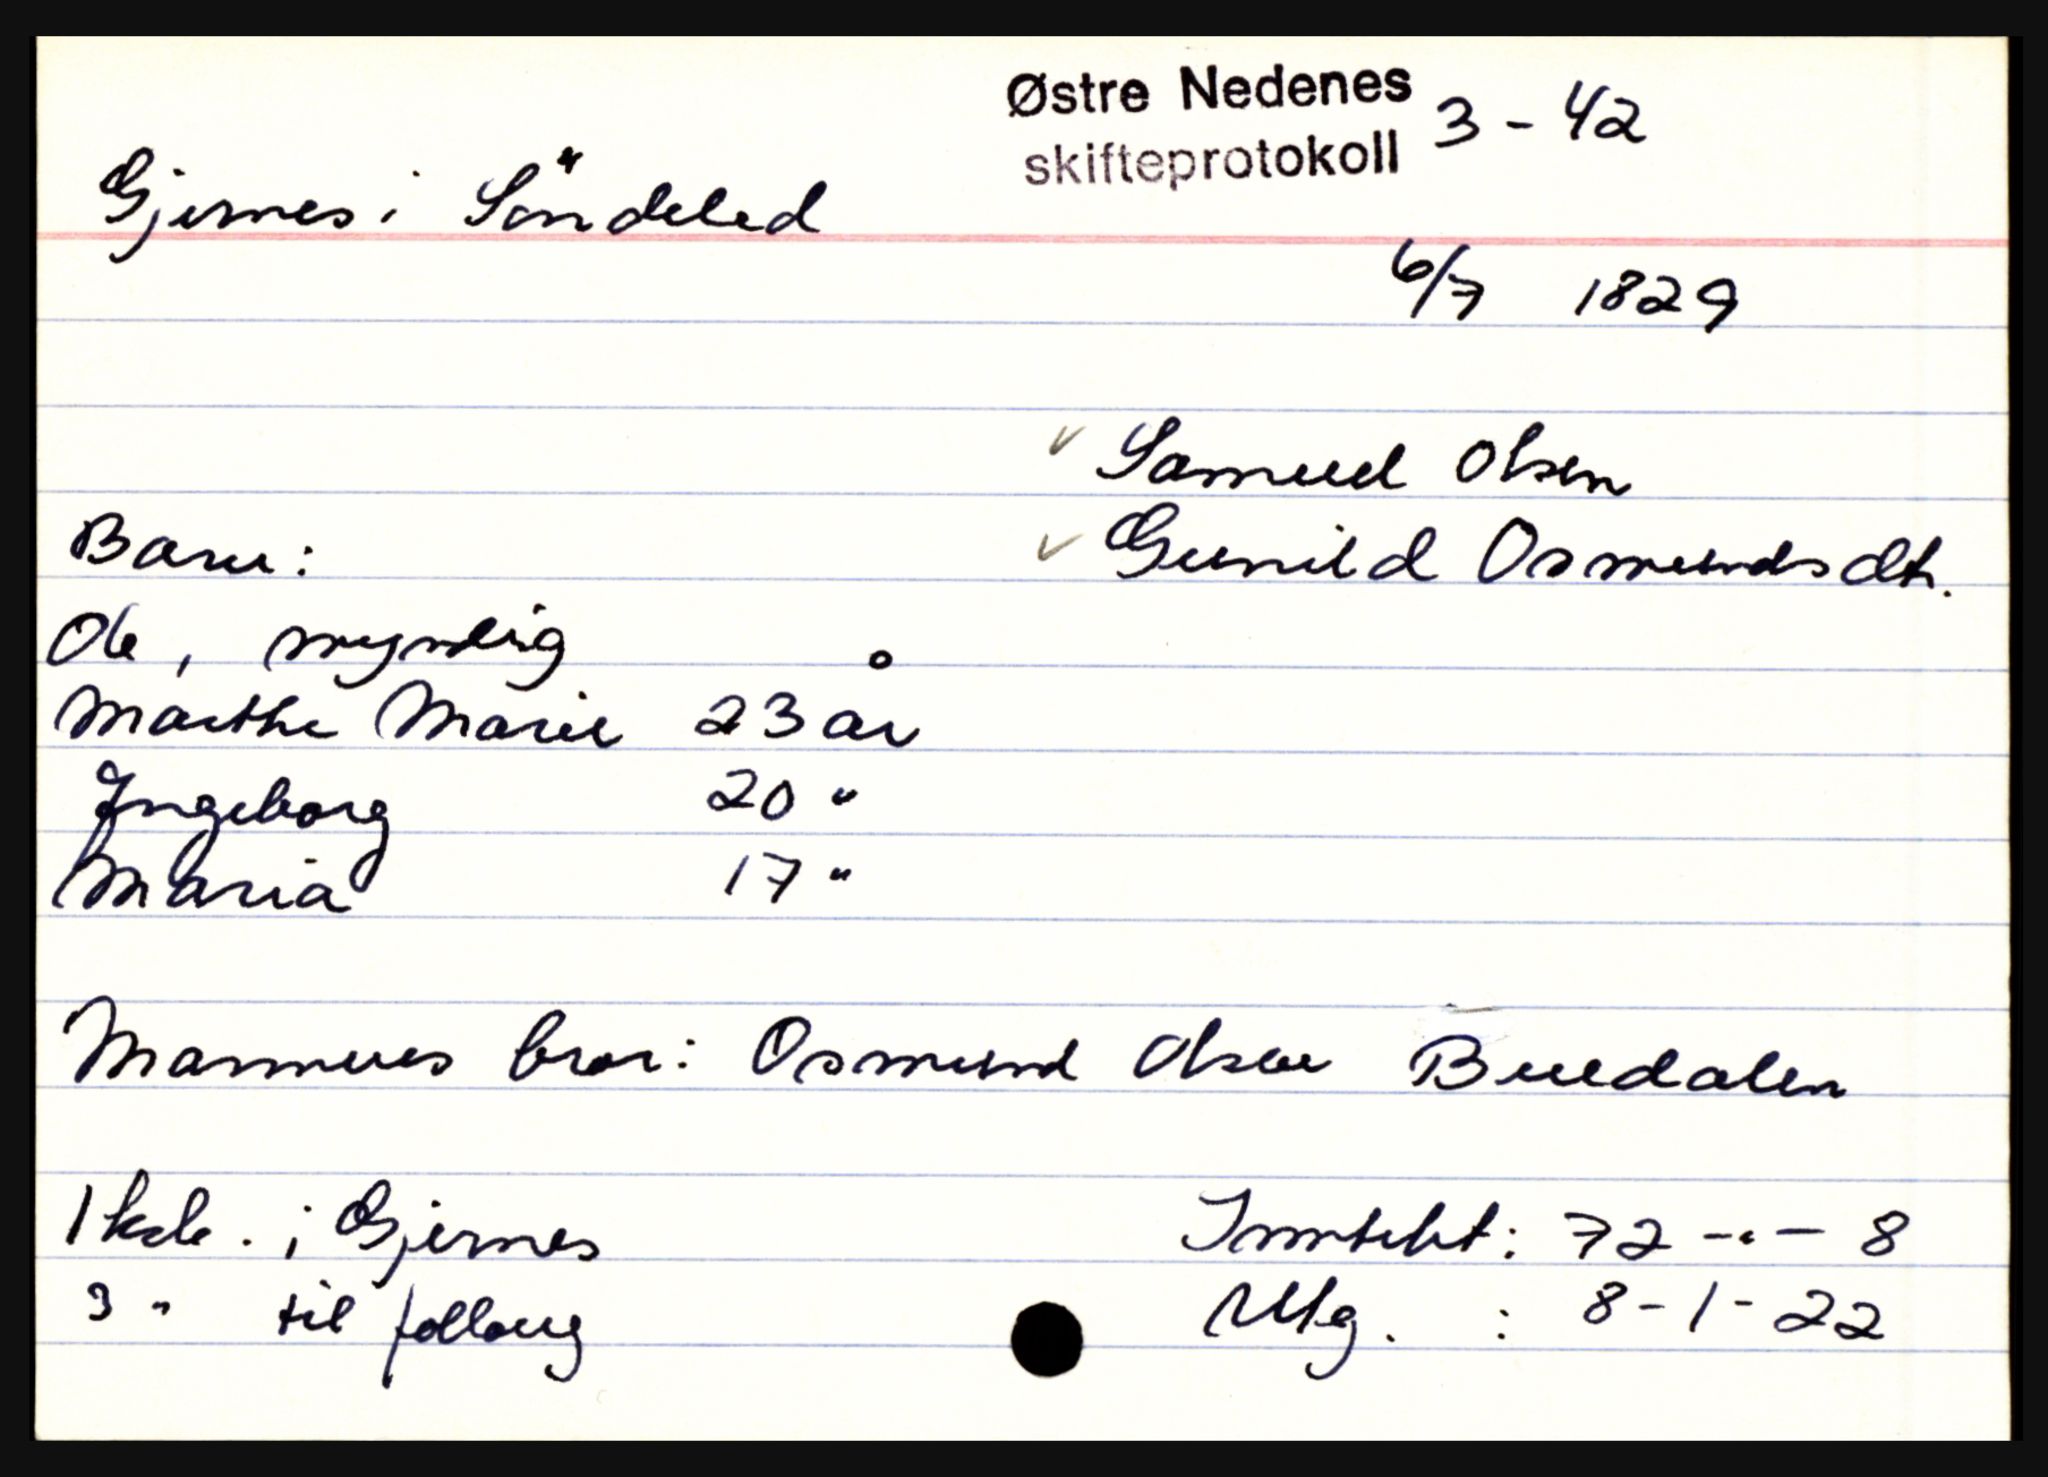 Østre Nedenes 3 - 42
skifteprotokoll
Gjernes i Söndeled
6/7 1829
Samuel Olsen
Barn: Gunild Osmundsdtr.
Ole, myndig
Marthe Marie 23 år
Ingeborg 20 "
Maria 17 "
Mannens bror: Osmund Olsen Buedalen
1 ksk. i Gjernes Inntekt: 72 - " - 8
3 " til follaug Utg. : 8 - 1 - 22